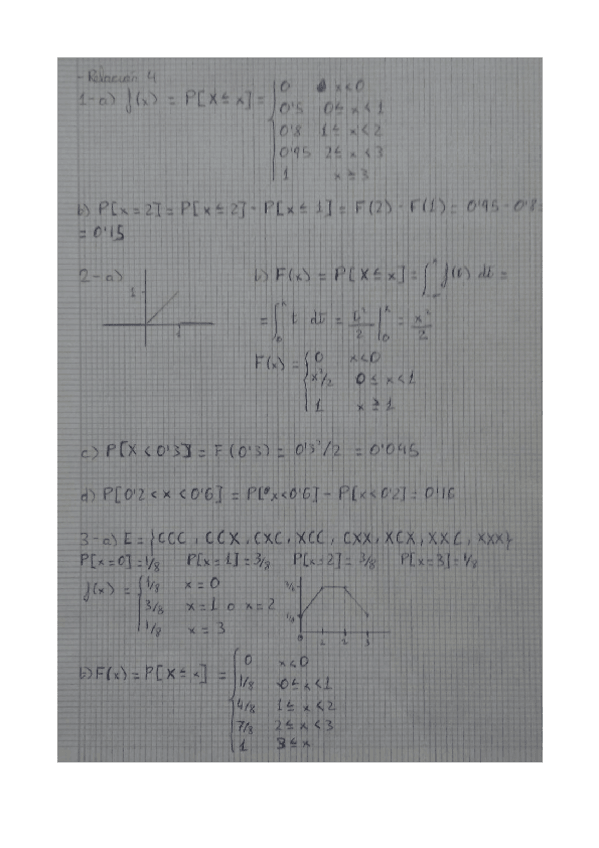 - Relación 4
1-a) f(x) = P[X ≤ x] = { 0 x<0
0'5 0≤ x < 1
0'8 1≤ x < 2
0'95 2≤ x < 3
1 x ≥ 3
b) P[x = 2] = P[x ≤ 2] - P[x ≤ 1] = F(2) - F(1) = 0'95 - 0'8 =
= 0'15
2-a) b) F(x) = P[X ≤ x] = ∫ f(t) dt =
1
1
= ∫₀ˣ t dt = t²/2 |₀ˣ = x²/2
F(x) = { 0 x<0
x²/2 0 ≤ x < 1
1 x ≥ 1
c) P[X < 0'3] = F(0'3) = 0'3²/2 = 0'045
d) P[0'2 < x < 0'6] = P[x<0'6] - P[x<0'2] = 0'16
3-a) E = {CCC, CCX, CXC, XCC, CXX, XCX, XXC, XXX}
P[x=0] = 1/8 P[x=1] = 3/8 P[x=2] = 3/8 P[x=3] = 1/8
f(x) = { 1/8 x = 0
3/8 x = 1 o x = 2
1/8 x = 3
0 1 2 3
b) F(x) = P[X ≤ x] = { 0 x<0
1/8 0 ≤ x < 1
4/8 1 ≤ x < 2
7/8 2 ≤ x < 3
1 3 ≤ x